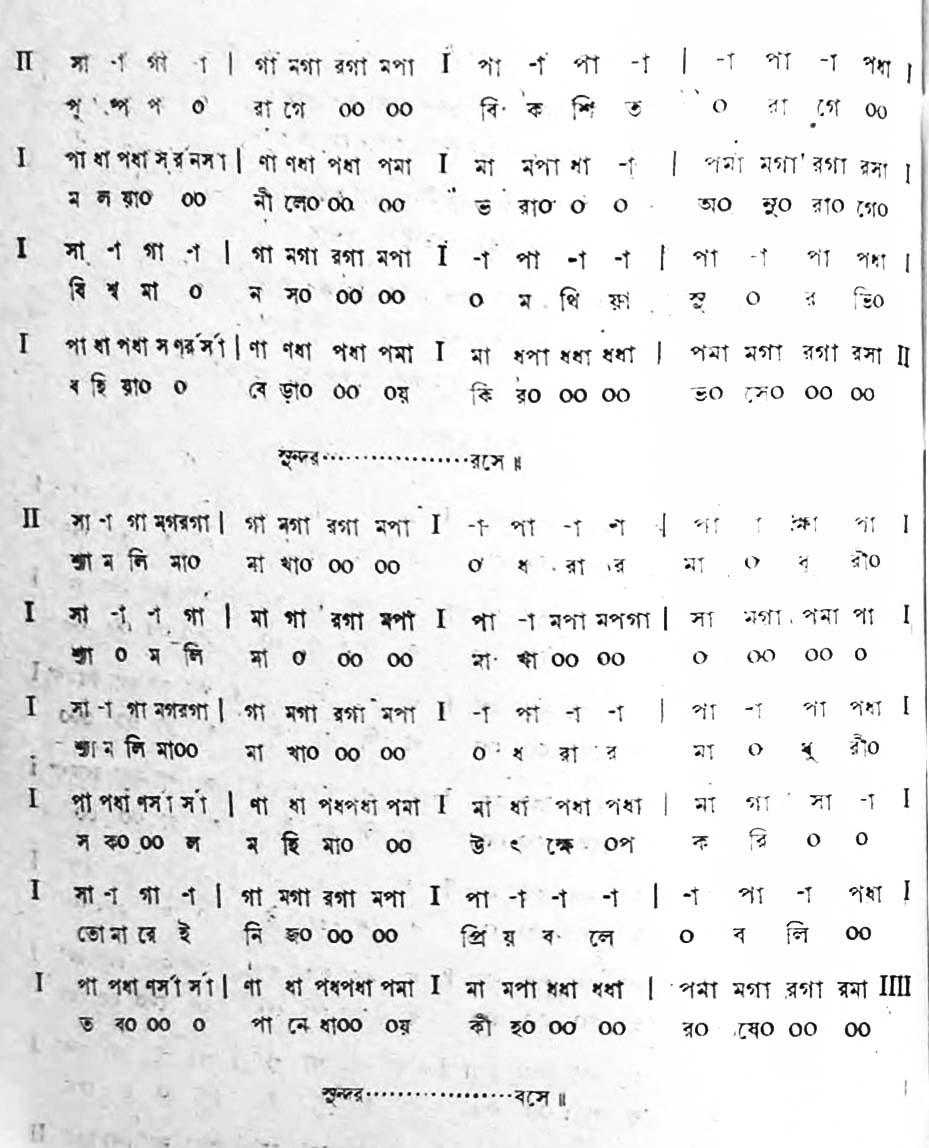 II সা -া গা -া | গা মগা রগা মপা I পা -া পা -া | -া পা -া পধা I
পু ষ্প প ০ রা গে ০০ ০০ বি ক শি ত ০ রা গে ০০
I পা ধা পধা সর্রনসা | ণা ণধা পধা পমা I মা মপা ধা -া | পমা মগা রগা রসা I
ম ল য়া০ ০০ নী লে০ ০০ ০০ ভ রা০ ০ ০ অ০ নু০ রা০ গে০
I সা -া গা -া | গা মগা রগা মপা I -া পা -া -া | পা -া পা পধা I
বি শ্ব মা ০ ন স০ ০০ ০০ ০ ম থি য়া সু ০ র ভি০
I পা ধা পধা সণর্রর্সা | ণা ণধা পধা পমা I মা ধপা ধধা ধধা | পমা মগা রগা রসা II
ব হি য়া০ ০ বে ড়া০ ০০ ০য় কি র০ ০০ ০০ ভ০ সে০ ০০ ০০
সুন্দর··················রসে॥
II সা -া গা মগরগা | গা মগা রগা মপা I -া পা -া -া | পা া ক্ষা পা I
শ্যা ম লি মা০ মা খা০ ০০ ০০ ০ ধ রা র মা ০ ধু রী০
I সা -া -া গা | মা গা রগা মপা I পা -া মপা মপগা | সা মগা পমা পা I
শ্যা ০ ম লি মা ০ ০০ ০০ মা খা ০০ ০০ ০ ০০ ০০ ০
I সা -া গা মগরগা | গা মগা রগা মপা I -া পা -া -া | পা -া পা পধা I
শ্যা ম লি মা০০ মা খা০ ০০ ০০ ০ ধ রা র মা ০ ধু রী০
I পা পধা ণর্সা র্সা | ণা ধা পধপধা পমা I মা ধা পধা পধা | মা গা সা -া I
স ক০ ০০ ল ম হি মা০ ০০ উ ৎ ক্ষে ০প ক রি ০ ০
I সা -া গা -া | গা মগা রগা মপা I পা -া -া -া | -া পা -া পধা I
তো মা রে ই নি জ০ ০০ ০০ প্রি য় ব লে ০ ব লি ০০
I পা পধা ণর্সা র্সা | ণা ধা পধপধা পমা I মা মপা ধধা ধধা | পমা মগা রগা রমা IIII
ত ব০ ০০ ০ পা নে ধা০০ ০য় কী হ০ ০০ ০০ র০ ষে০ ০০ ০০
সুন্দর··················বসে॥